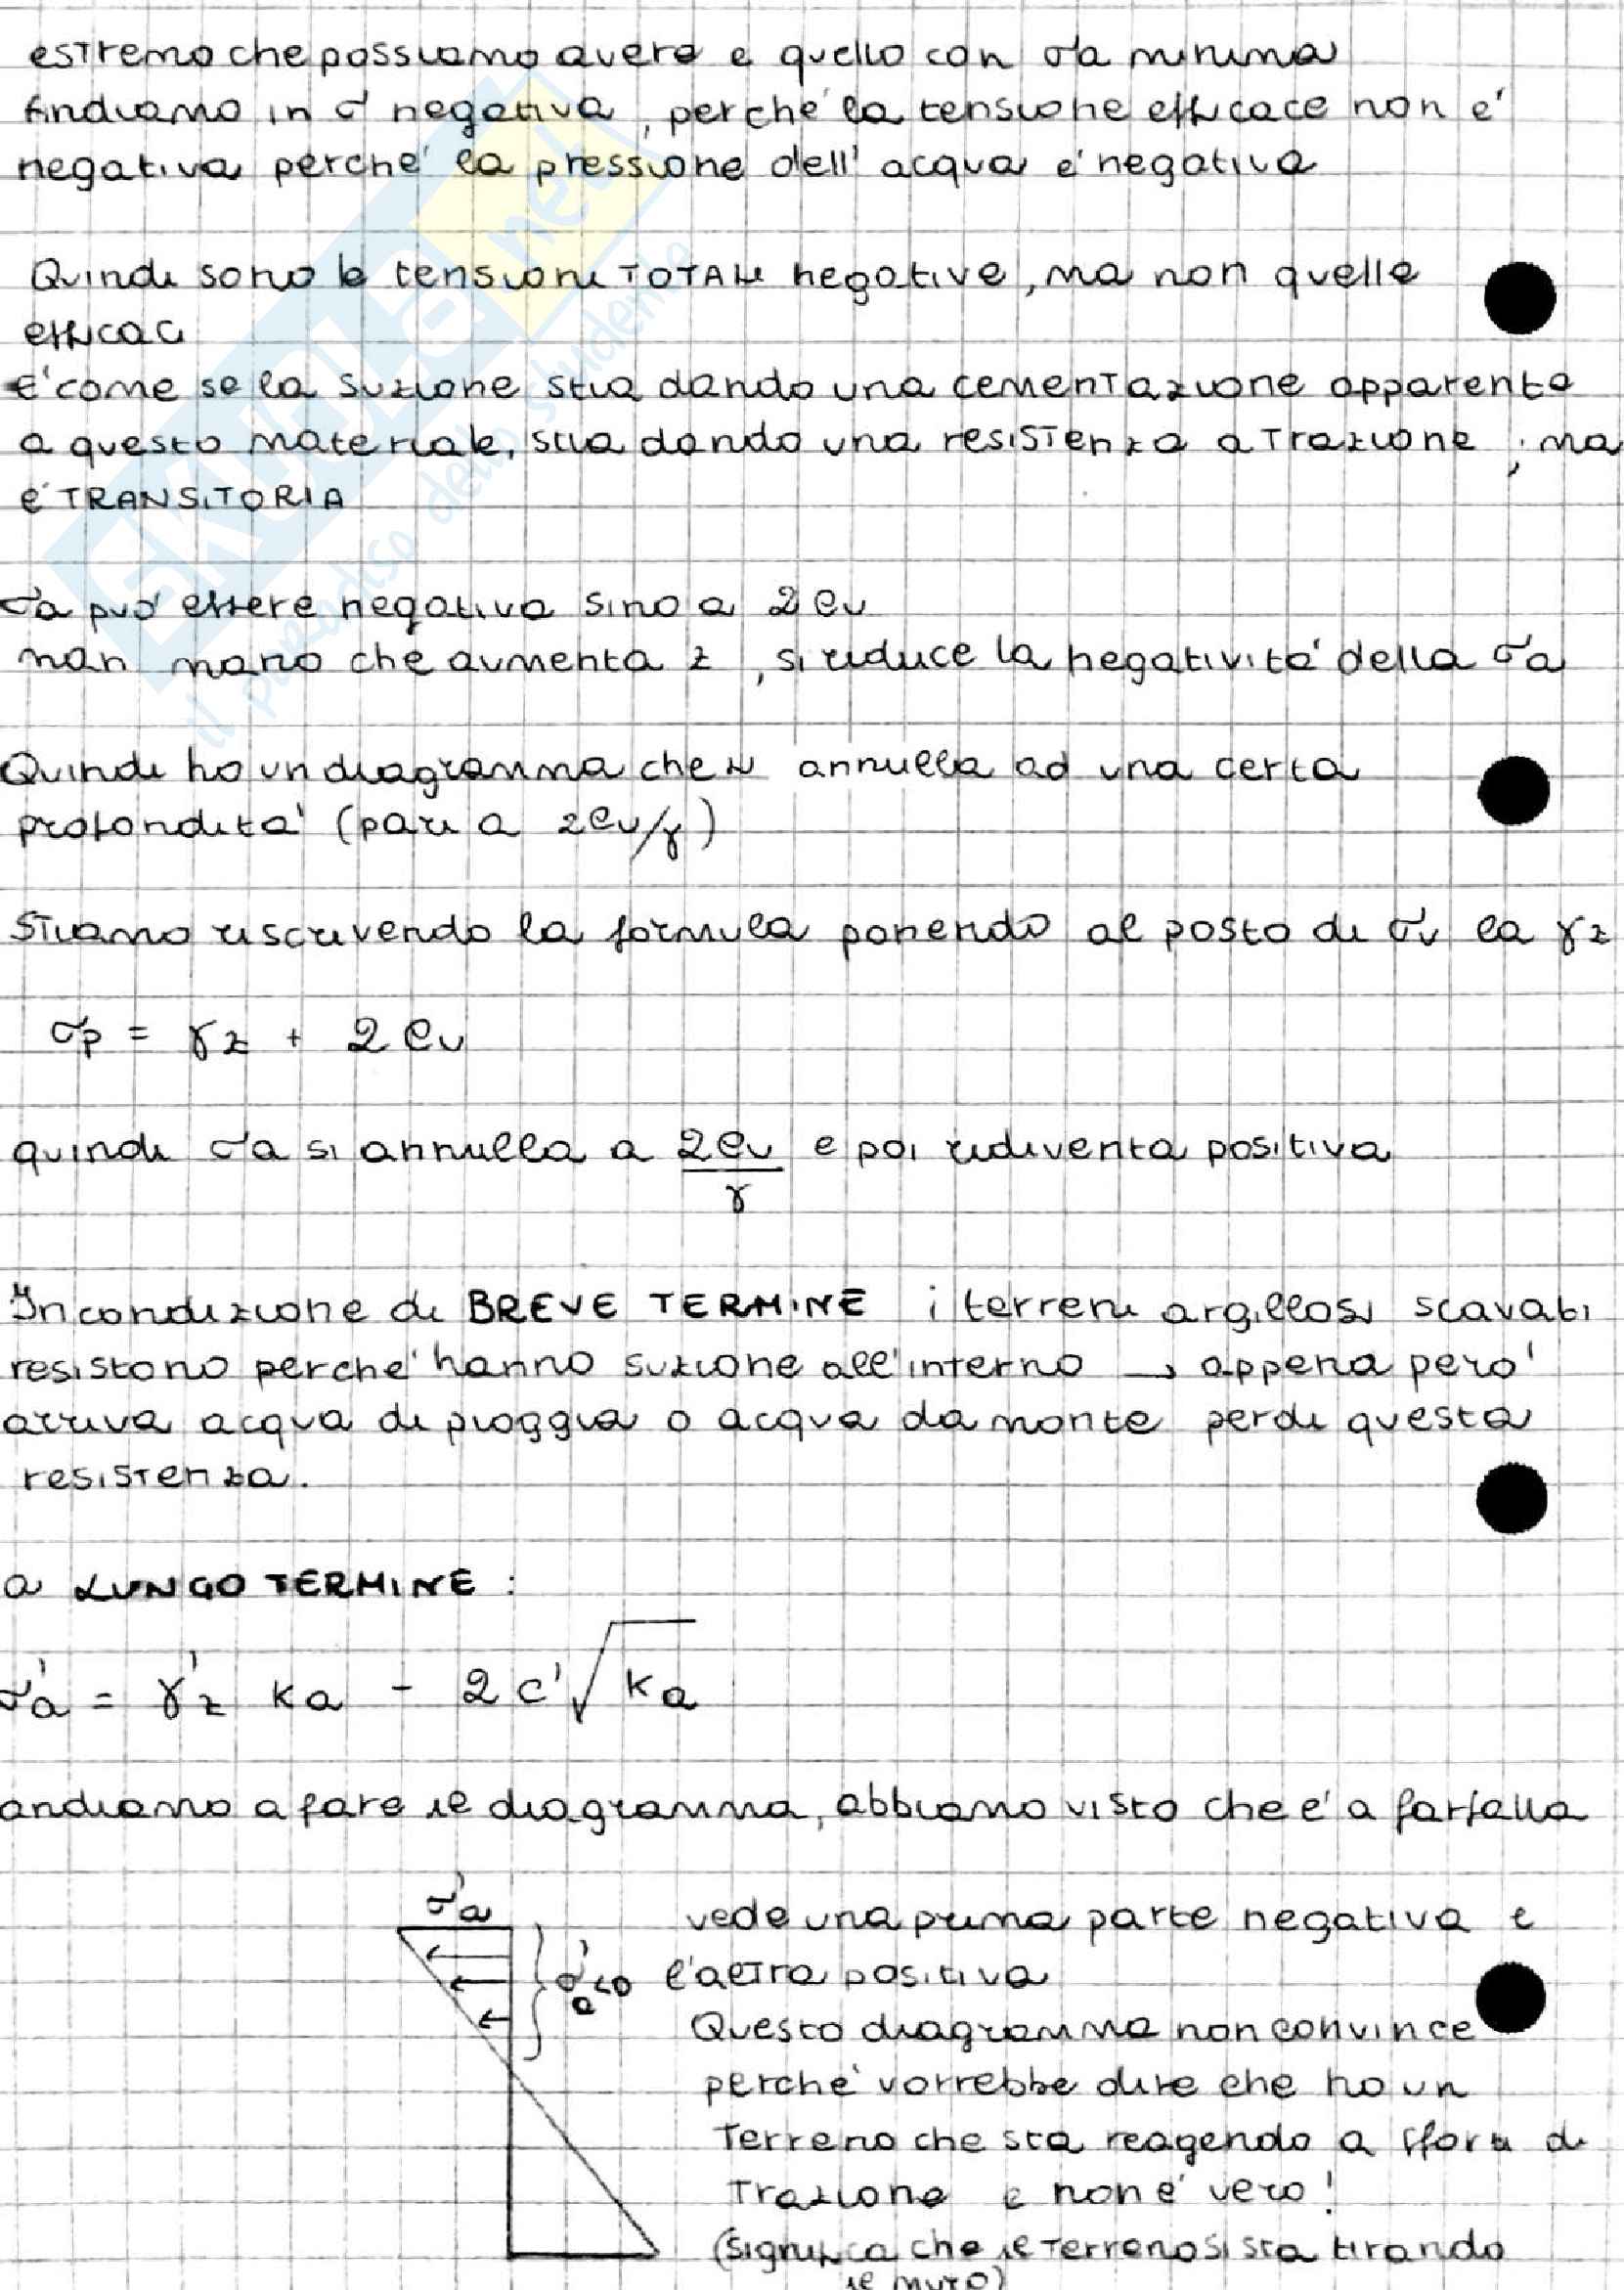 estremo che possiamo avere e quello con σa minima
Andiamo in σ negativa, perché la tensione efficace non è
negativa perché la pressione dell'acqua è negativa
Quindi sono le tensioni TOTALI negative, ma non quelle
efficaci
È come se la suzione stia dando una cementazione apparente
a questo materiale, stia dando una resistenza a trazione, ma
è TRANSITORIA
σa può essere negativa sino a 2cu
man mano che aumenta z, si riduce la negatività della σa
Quindi ho un diagramma che si annulla ad una certa
profondità (pari a 2cu/γ)
Stiamo riscrivendo la formula ponendo al posto di σv la γz
σp = γz + 2cu
quindi σa si annulla a 2cu/γ e poi ridiventa positiva
In condizione di BREVE TERMINE i terreni argillosi scavati
resistono perché hanno suzione all'interno → appena però
arriva acqua di pioggia o acqua da monte perdi questa
resistenza.
a LUNGO TERMINE:
σ'a = γ'z ka - 2c'√ka
andiamo a fare il diagramma, abbiamo visto che è a farfalla
σ'a
σ'a<0
vede una prima parte negativa e
l'altra positiva
Questo diagramma non convince
perché vorrebbe dire che ho un
terreno che sta reagendo a sforzi di
trazione e non è vero!
(significa che il terreno si sta tirando
il muro)
skuola.net
il paradiso dello studente